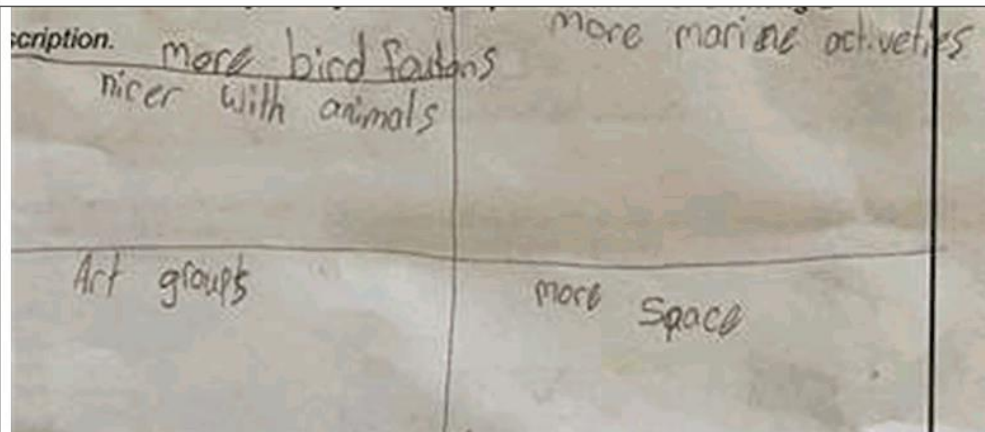 scription.
more bird foutons
nicer with animals
more marine activeties
Art groups
more space